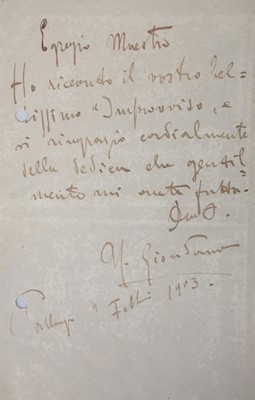 Egregio Maestro
Ho ricevuto il vostro bel=
lissimo "Improvviso, e
vi ringrazio cordialmente
della dedica che gentil=
mente mi avete fatta=

U. Giordano
Febb. 1903.